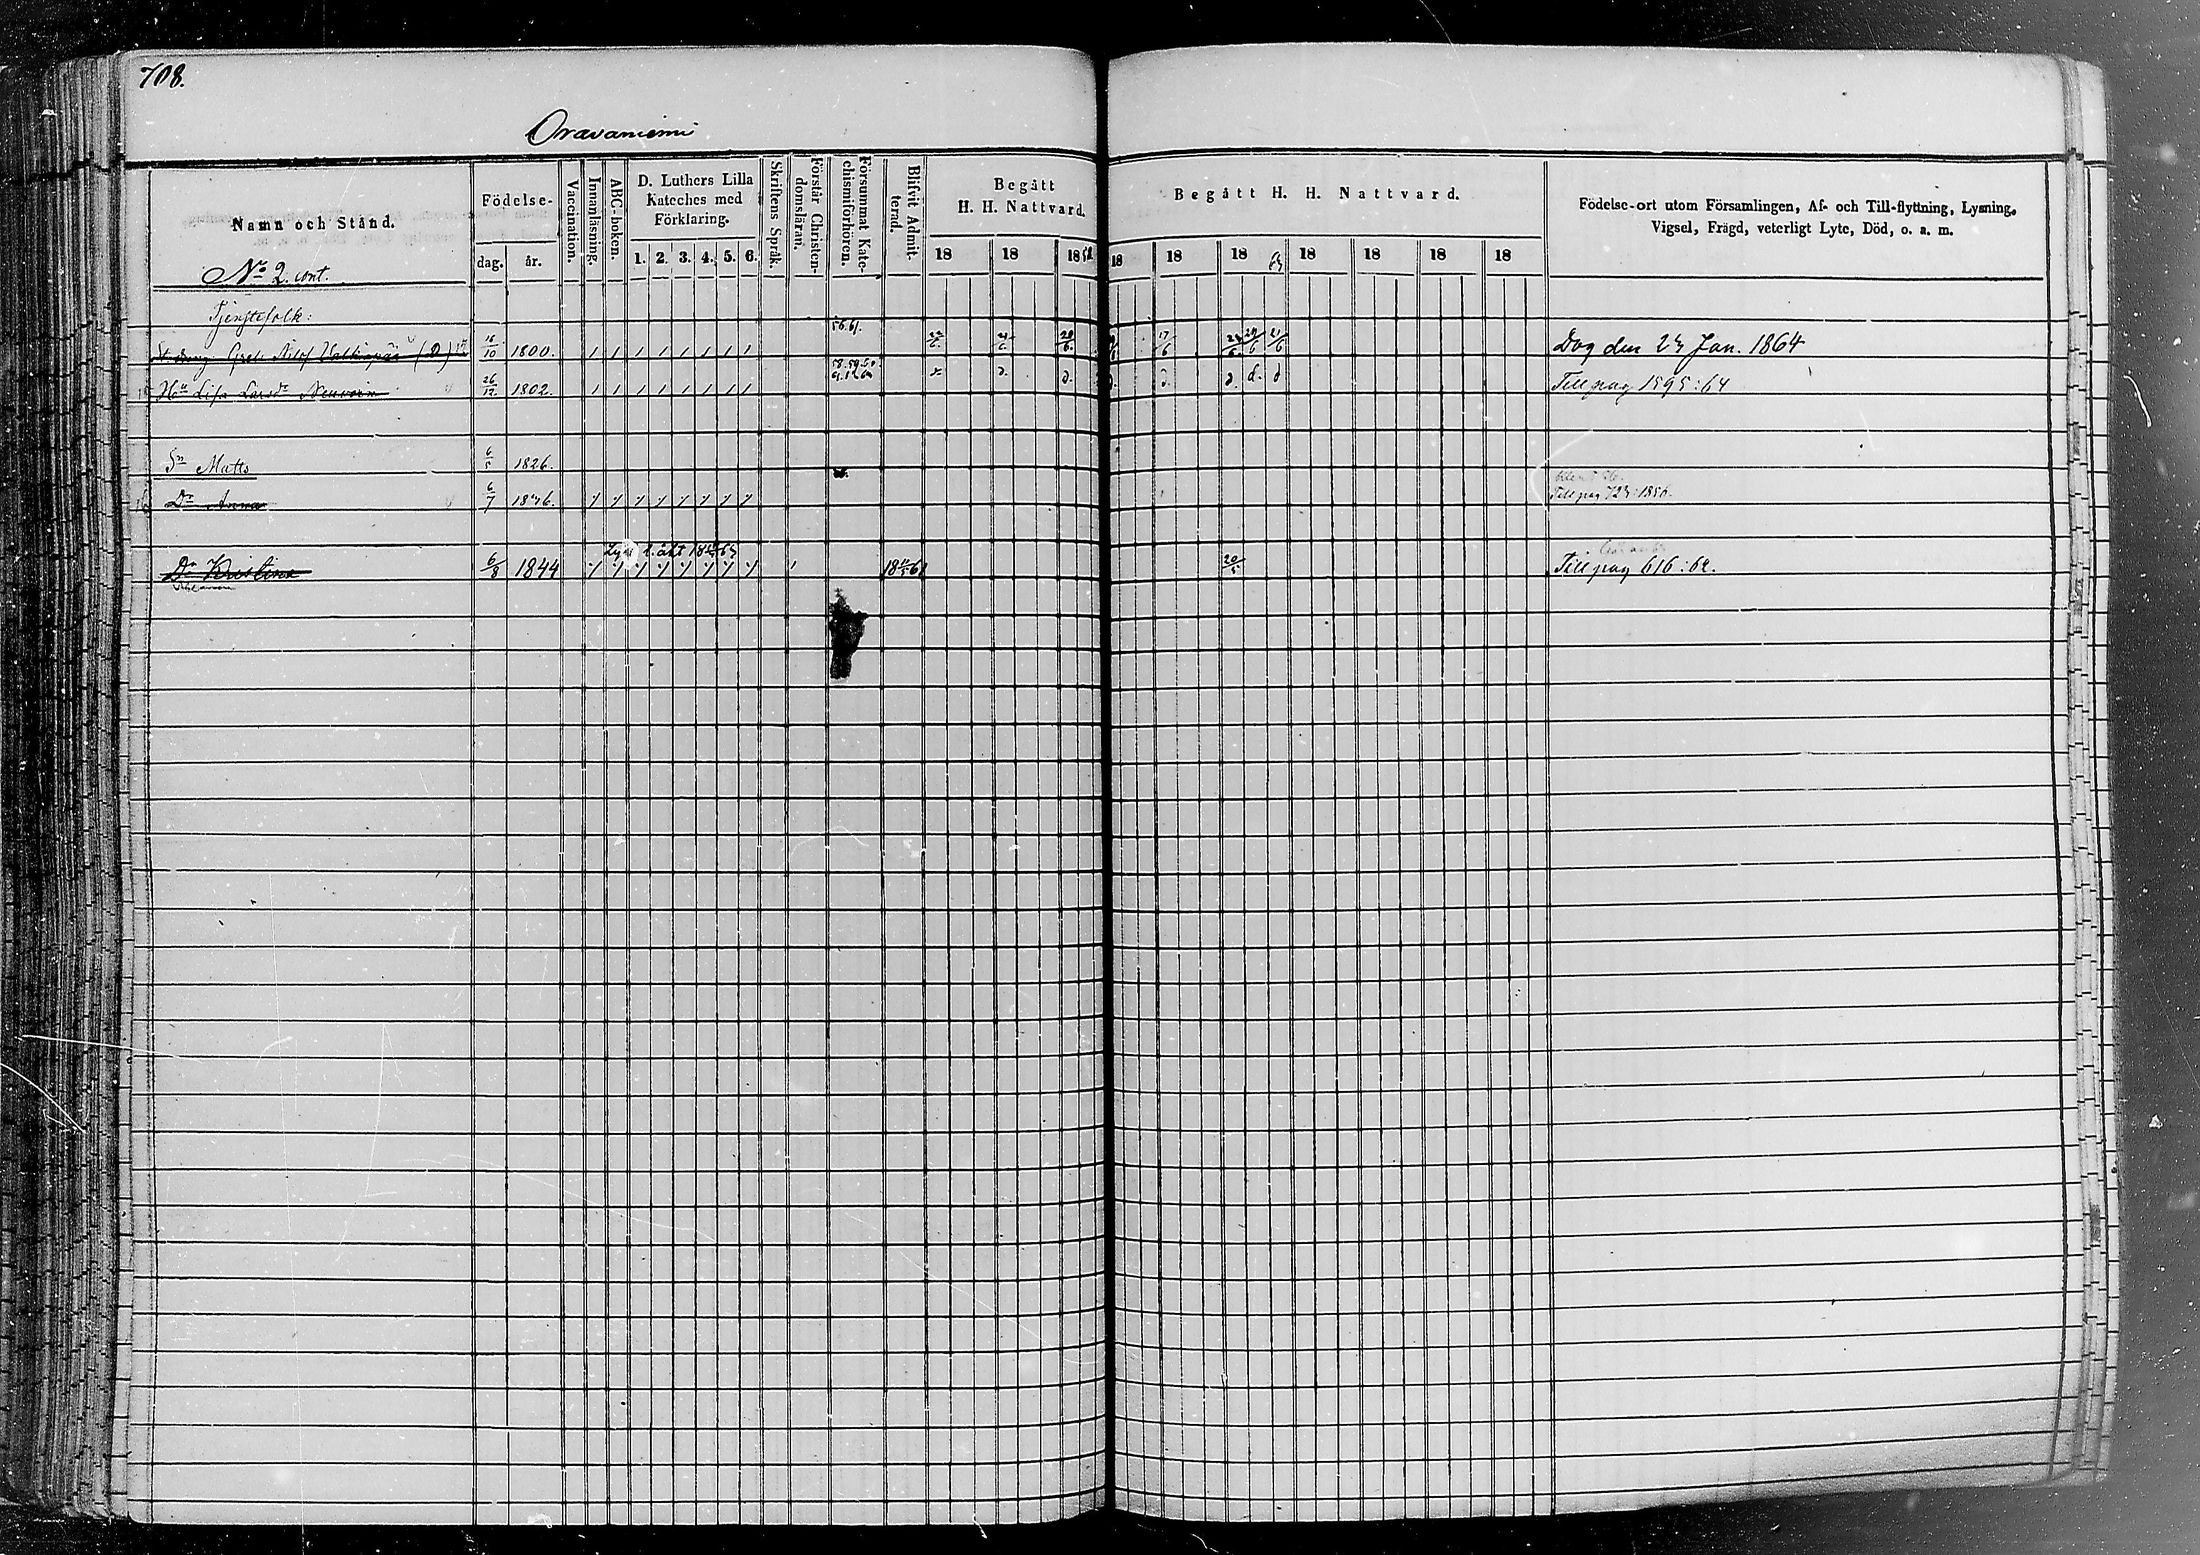 708.
Oravaniemi
Namn och Stånd.
Födelse-
dag. år.
Vaccination.
Innanläsning.
ABC-boken.
D. Luthers Lilla
Kateches med
Förklaring.
1. 2. 3. 4. 5. 6.
Skriftens Språk.
Förstår Christen-
domsläran.
Försummat Kate-
chismiförhören.
Blifvit Admit-
terad.
Begått
H. H. Nattvard.
18 18 18
Begått H. H. Nattvard.
18 18 18 63 18 18 18 18
Födelse-ort utom Församlingen, Af- och Till-flyttning, Lysning,
Vigsel, Frägd, veterligt Lyte, Död, o. a. m.
No 2. cont.
Tjenstefolk:
56.61.
(D) 16/10 1800. 17/6 Dog den 23 Jan. 1864
58.59.60.
Hu Lisa Larsdr 26/12. 1802. d. d. d. d. d. d Till pag 1595:64
Sn Matts 6/5 1826.
Dr Anna 6/7 1836. Till pag 723:1856.
Dr Kristina 6/8 1844 20/5 Till pag 616:62.